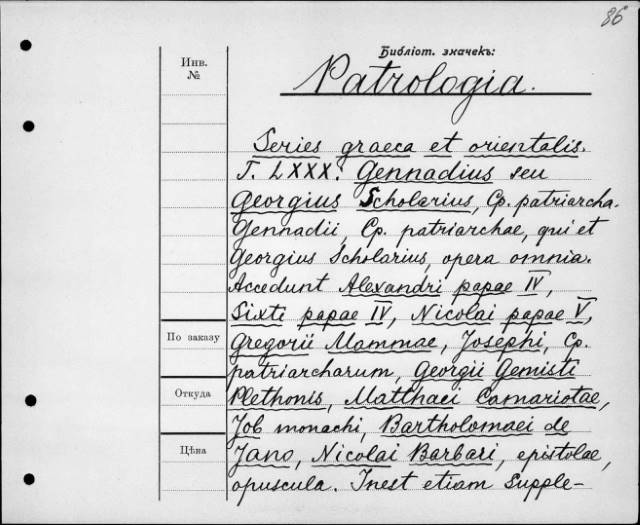 86
Библіот. значекъ:
Инв.
№
Patrologia.
Series graeca et orientalis.
T. LXXX: Gennadius seu
Georgius Scholarius, Cp. patriarcha.
Gennadii, Cp. patriarchae, qui et
Georgius Scholarius, opera omnia.
Accedunt Alexandri papae IV,
Sixti papae IV, Nicolai papae V,
По заказу
Gregorii Mammae, Josephi, Cp.
patriarcharum, Georgii Gemisti
Откуда
Plethonis, Matthaei Camariotae,
Job monachi, Bartholomaei de
Цѣна
Jano, Nicolai Barbari, epistolae,
opuscula. Inest etiam supple-